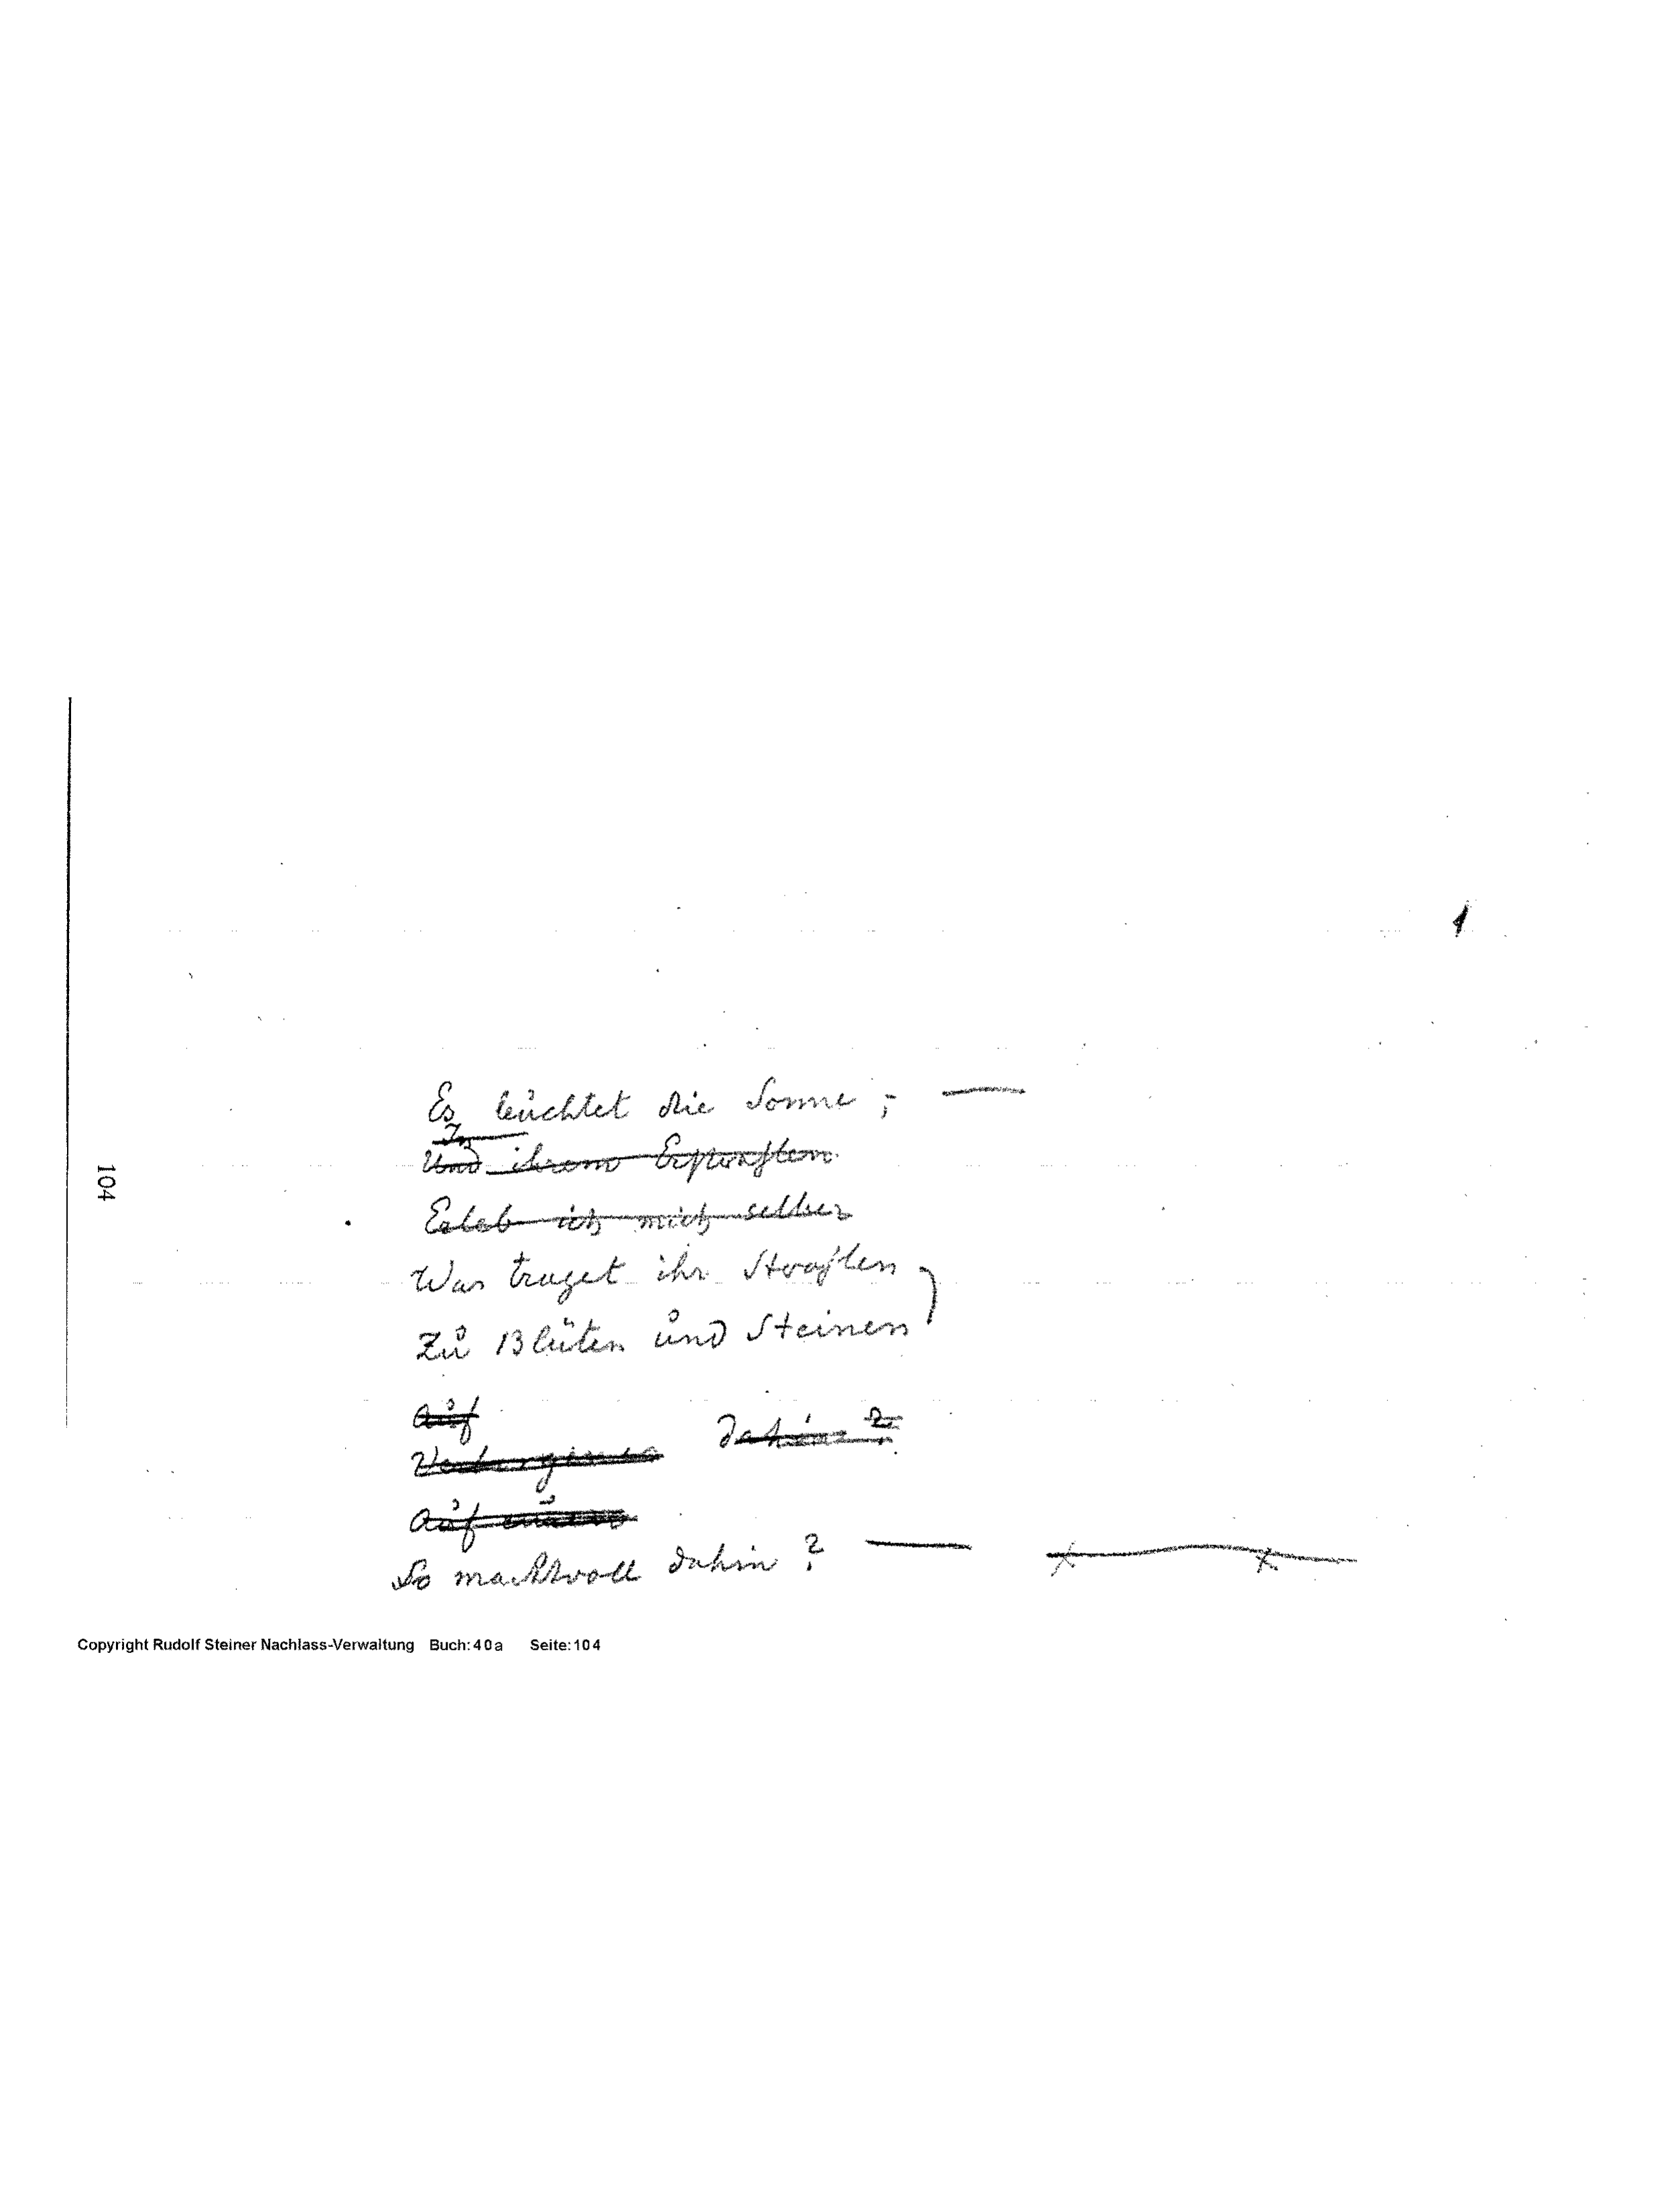 1
Es leuchtet die Sonne ; —
In
Und ihrem Erstrahlen
Erleb ich mich selber
Was traget ihr Strahlen
Zu Blüten und Steinen
Auf
Verborgenes dahin ?
Auf
So machtvoll dahin ? —
104
Copyright Rudolf Steiner Nachlass-Verwaltung Buch:40a Seite:104